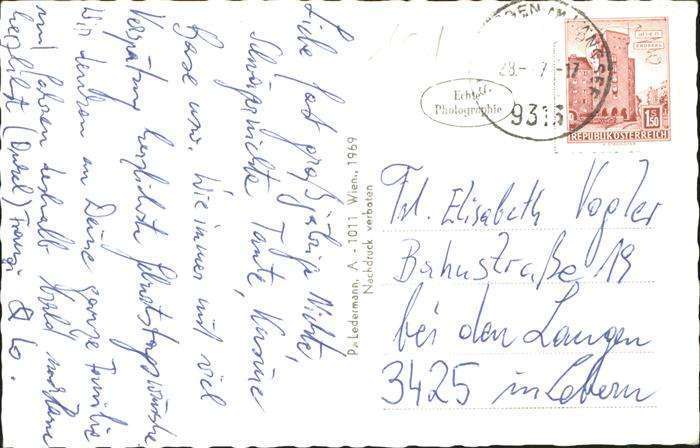 Liebe fast großjährige Nichte,
Schwiegernichte, Tante, Cousine
Base usw. Wie immer mit viel
Verspätung herzlichste Geburtstagswünsche
Wir denken an Deine ganze Familie
und
herzlichst (Onkel) Franzi & Co.
P. Ledermann, A - 1011 Wien, 1969
Nachdruck verboten
Echte
Photographie
AM
SEE
28.- 7 -17
9313
WIEN
1.50
REPUBLIK ÖSTERREICH
Frl. Elisabeth Vogler
Bahnstraße 19
bei der Langen
3425 in Lebern